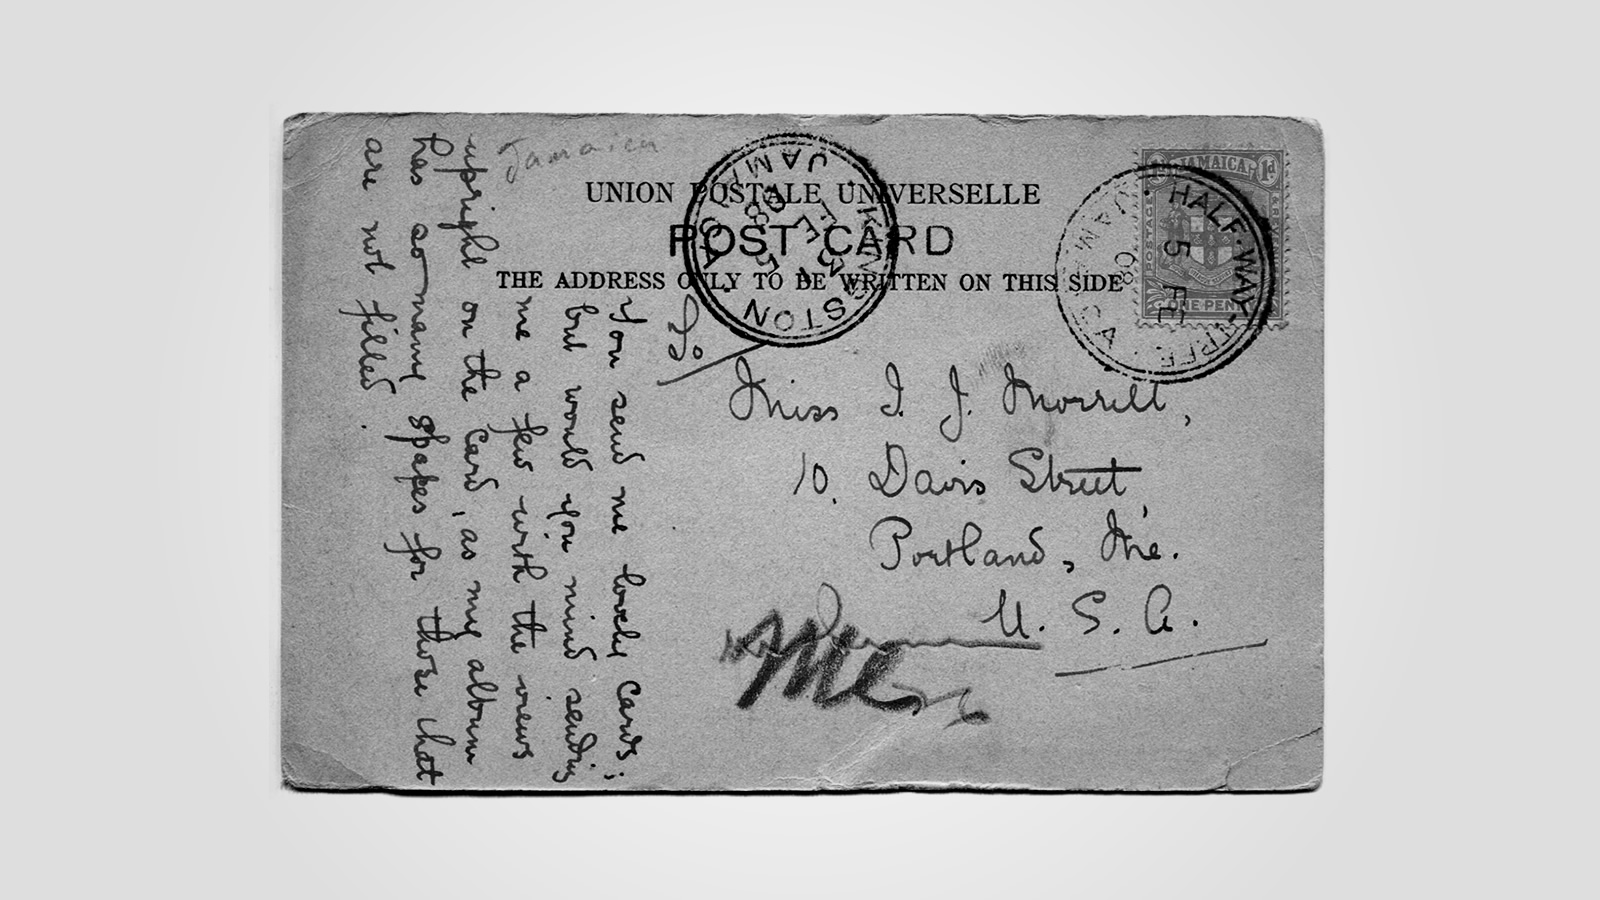 Jamaica
UNION POSTALE UNIVERSELLE
POST CARD
THE ADDRESS ONLY TO BE WRITTEN ON THIS SIDE
KINGSTON
JAMAICA
JAMAICA
1d
POSTAGE & REVENUE
ONE PENNY
HALF-WAY-TREE
JAMAICA
5 FE
08
To
Miss I. J. Morrill,
10. Davis Street,
Portland, Me.
U. S. A.
Me
You send me lovely cards;
but would you mind sending
me a few with the views
upright on the card, as my album
has so many spaces for those that
are not filled.